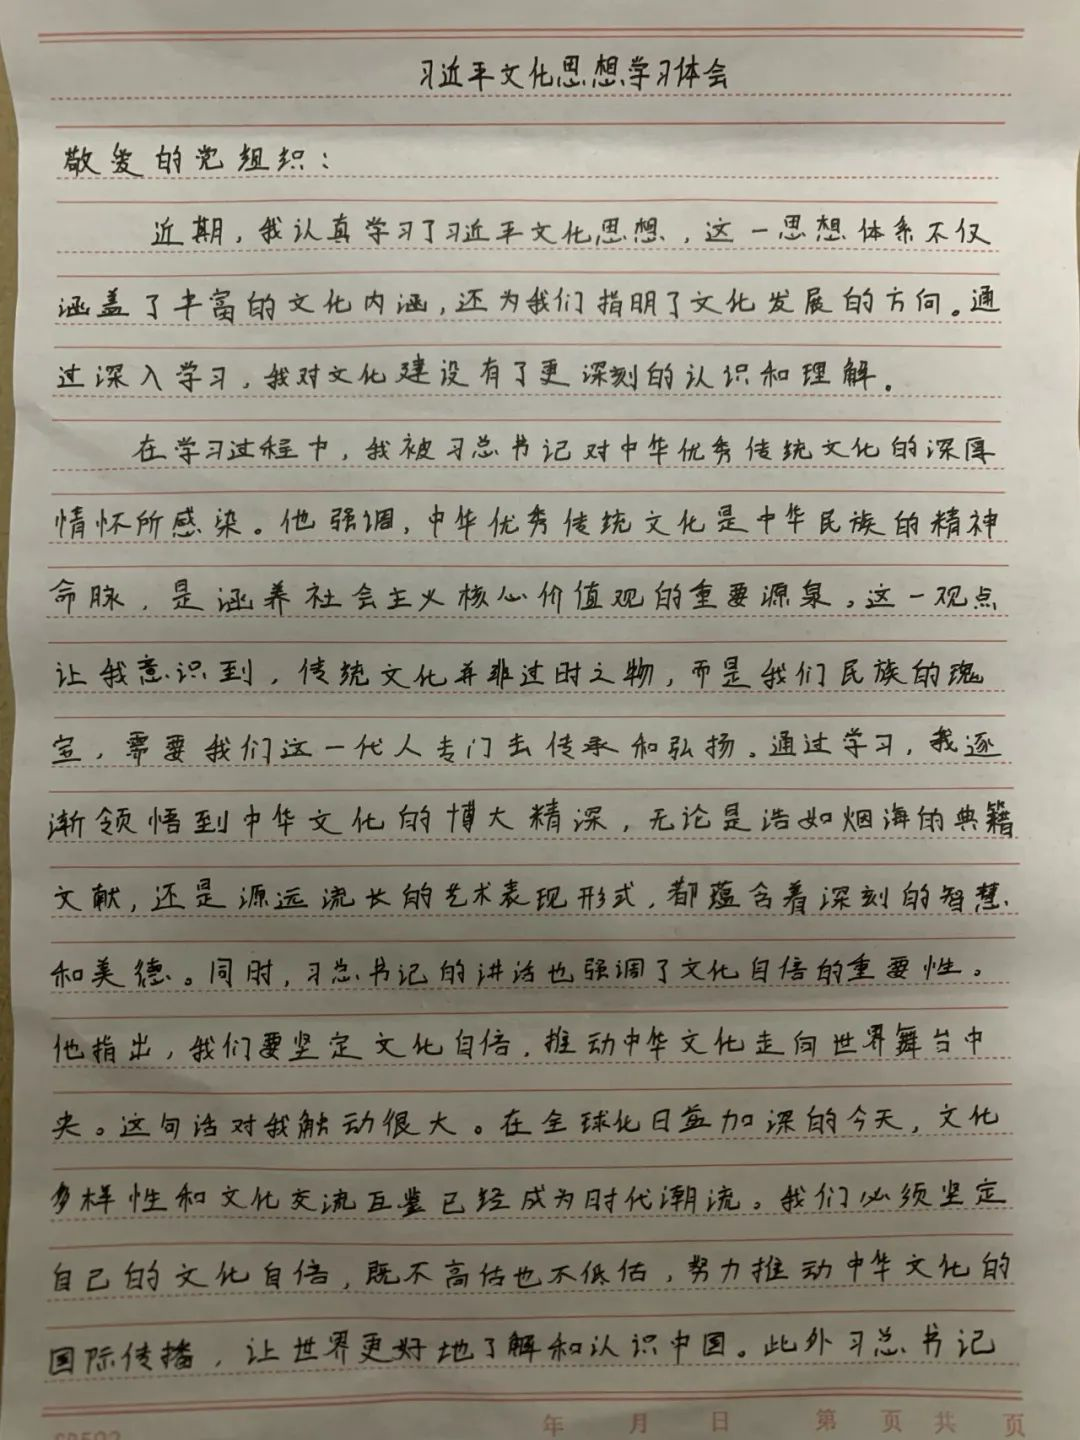 习近平文化思想学习体会
敬爱的党组织：
近期，我认真学习了习近平文化思想，这一思想体系不仅
涵盖了丰富的文化内涵，还为我们指明了文化发展的方向。通
过深入学习，我对文化建设有了更深刻的认识和理解。
在学习过程中，我被习总书记对中华优秀传统文化的深厚
情怀所感染。他强调，中华优秀传统文化是中华民族的精神
命脉，是涵养社会主义核心价值观的重要源泉。这一观点
让我意识到，传统文化并非过时之物，而是我们民族的瑰
宝，需要我们这一代人专门去传承和弘扬。通过学习，我逐
渐领悟到中华文化的博大精深，无论是浩如烟海的典籍
文献，还是源远流长的艺术表现形式，都蕴含着深刻的智慧
和美德。同时，习总书记的讲话也强调了文化自信的重要性。
他指出，我们要坚定文化自信，推动中华文化走向世界舞台中
央。这句话对我触动很大。在全球化日益加深的今天，文化
多样性和文化交流互鉴已经成为时代潮流。我们必须坚定
自己的文化自信，既不高估也不低估，努力推动中华文化的
国际传播，让世界更好地了解和认识中国。此外习总书记
年 月 日 第 页 共 页